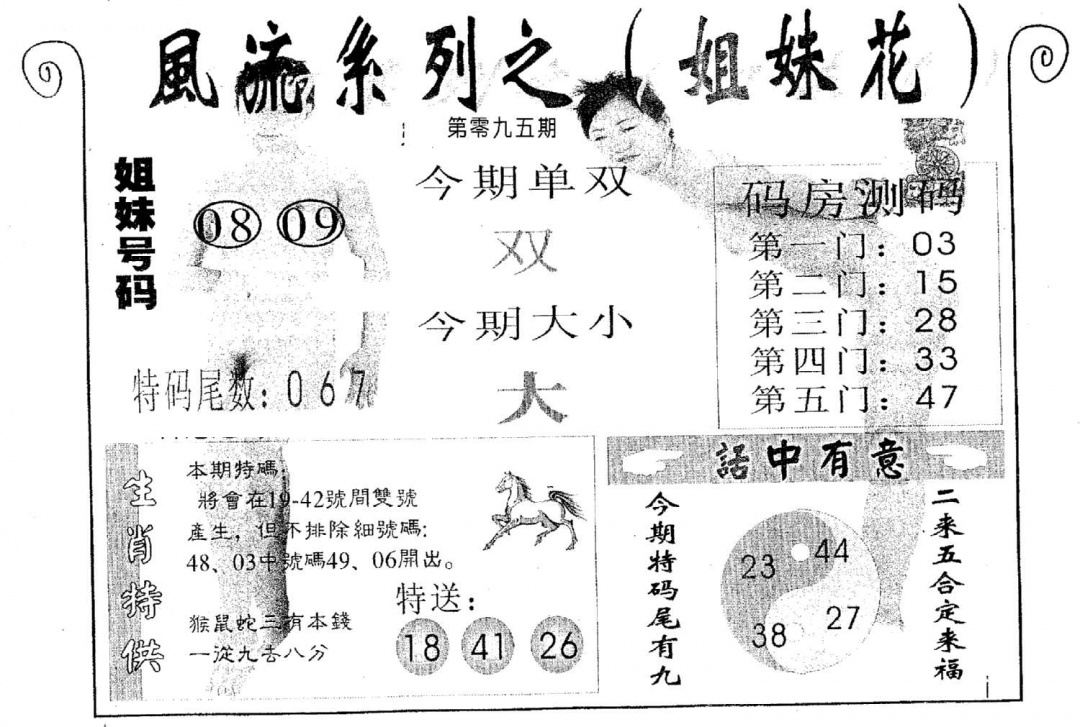 風流系列之（姐妹花）
第零九五期
姐妹号码
08 09
特码尾数：067
今期单双
双
今期大小
大
码房测码
第一门：03
第二门：15
第三门：28
第四门：33
第五门：47
生肖特供
本期特碼：
將會在19-42號間雙號
產生，但不排除細號碼：
48、03中號碼49、06開出。
猴鼠蛇三有本錢
一從九去八分
特送：
18 41 26
話中有意
今期特码尾有九
23 44
38 27
二来五合定来福